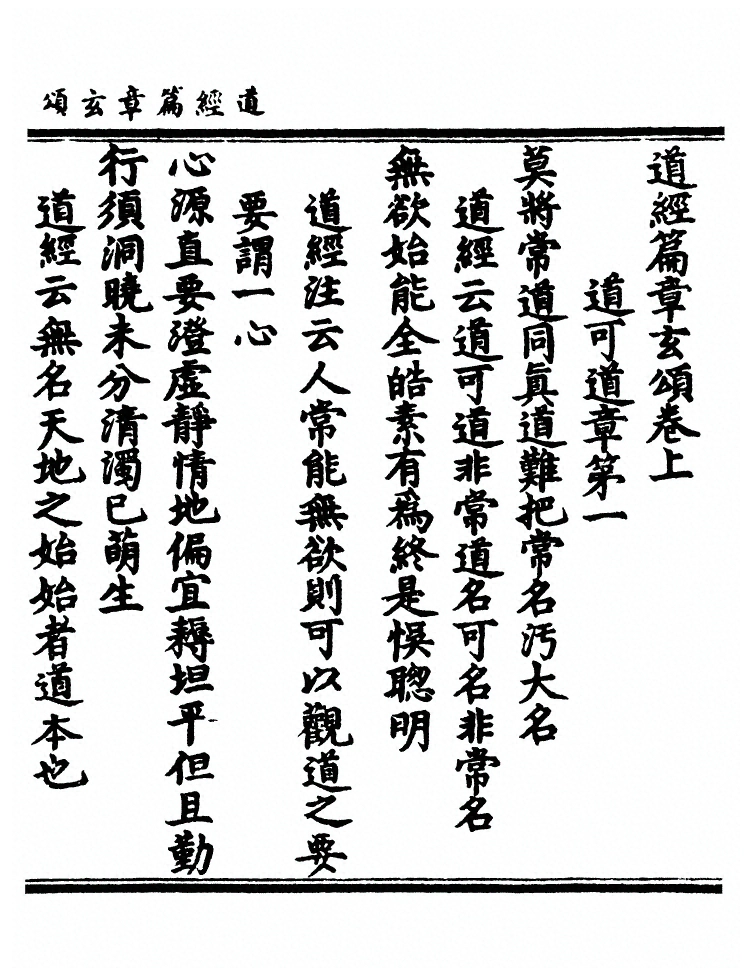 道經篇章玄頌
道經篇章玄頌卷上
道可道章第一
莫將常道同眞道難把常名汚大名
道經云道可道非常道名可名非常名
無欲始能全皓素有爲終是悞聰明
道經注云人常能無欲則可以觀道之要
要謂一心
心源直要澄虛靜情地偏宜耨坦平但且勤
行須洞曉未分清濁已萌生
道經云無名天地之始始者道本也